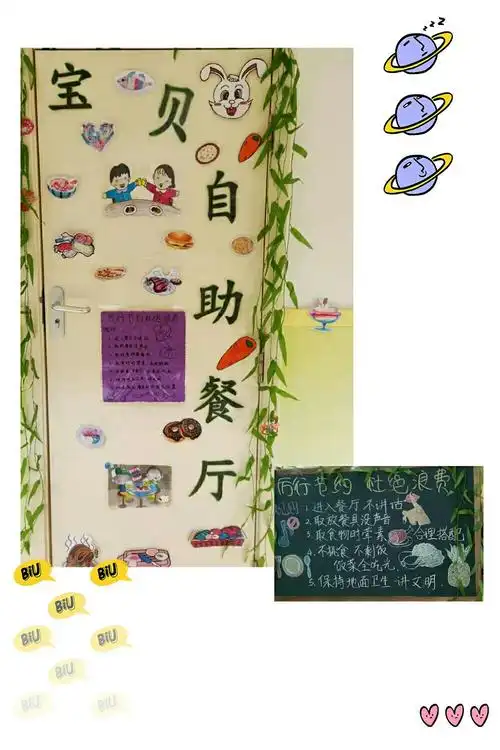 宝贝自助餐厅
厉行节约 杜绝浪费
1. 进入餐厅 不讲话
2. 取放餐具没声音
3. 取食物时荤素 合理搭配
4. 不挑食 不剩饭
饭菜全吃光
5. 保持地面卫生 讲文明.
z z z
BiU BiU
BiU
BiU BiU
BiU
BiU BiU